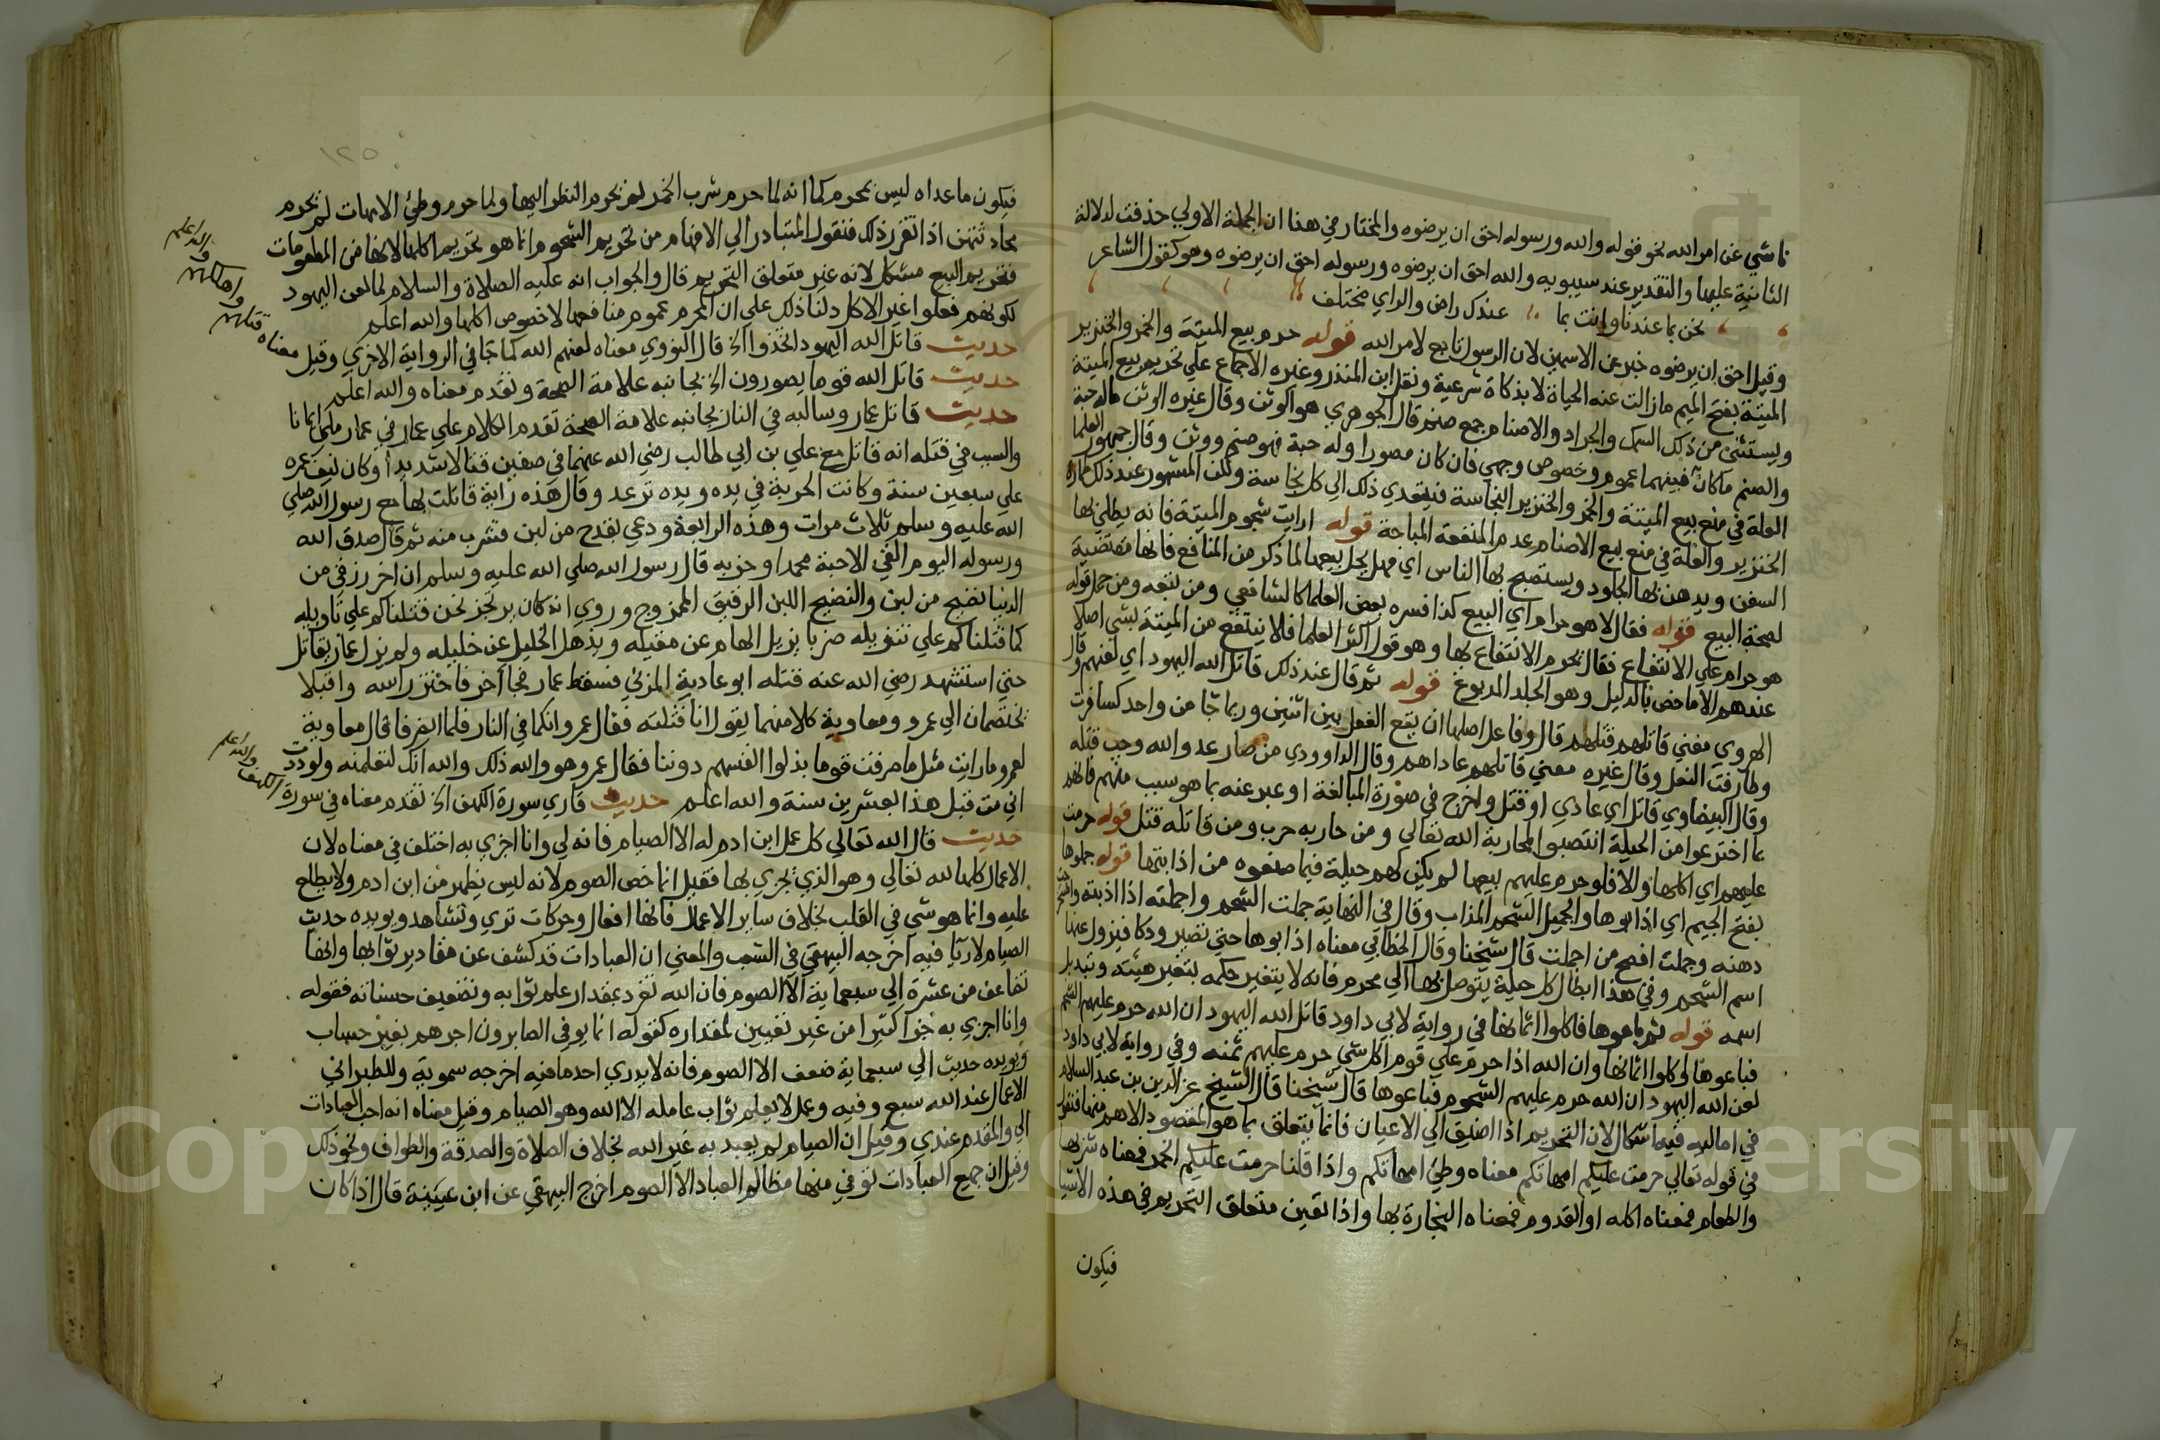 ناشي عن امر الله نحو قوله والله ورسوله احق ان يرضوه والمختار في هذا ان الجملة الاولي حذفت لدلالة
الثانية عليها والتقدير عند سيبويه والله احق ان يرضوه ورسوله احق ان يرضوه وهو كقول الشاعر
نحن بما عندنا وانت بما عندك راض والراي مختلف
وقيل احق ان يرضوه خبر عن الاسمين لان الرسول تابع لامر الله قوله حرم بيع الميتة والخمر والخنزير
الميتة بفتح الميم ما زالت عنه الحياة لا بذكاة شرعية ونقل ابن المنذر وغيره الاجماع علي تحريم بيع الميتة
ويستثني من ذلك السمك والجراد والاصنام جمع صنم قال الجوهري هو الوثن وقال غيره الوثن ماله جثة
والصنم ماكان فبينهما عموم وخصوص وجهي فان كان مصورا وله جثة فهو صنم ووثن وقال جمهور العلما
العلة في منع بيع الميتة والخمر والخنزير النجاسة فيتعدي ذلك الي كل نجاسة ولكن المشهور عند ذلك طهارة
الخنزير والعلة في منع بيع الاصنام عدم المنفعة المباحة قوله ارايت شحوم الميتة فانه يطلي بها
السفن ويدهن بها الجلود ويستصبح بها الناس اي فهل يحل بيعها لما ذكر من المنافع فانها مقتضية
لصحة البيع قوله فقال لا هو حرام اي البيع كذا فسره بعض العلما كالشافعي ومن تبعه ومن حمل قوله
هو حرام علي الانتفاع فقال يحرم الانتفاع بها وهو قول اكثر العلما فلا ينتفع من الميتة بشي اصلا
عندهم الا ما خص بالدليل وهو الجلد المدبوغ قوله ثم قال عند ذلك قاتل الله اليهود اي لعنهم قال
الهروي معني قاتلهم قتلهم قال وفاعل اصلها ان يقع الفعل بين اثنين وربما جا من واحد كسافرت
وطارقت النعل وقال غيره معني قاتلهم عاداهم وقال الداوودي من صار عدو الله وجب قتله
وقال البيضاوي قاتل اي عادي او قتل واخرج في صورة المبالغة او عبر عنه بما هو سبب منهم فانهم
بما اخترعوا من الحيلة انتصبوا لمحاربة الله تعالي ومن حاربه حرب ومن قاتله قتل قوله حرمت
عليهم اي اكلها والا فلو حرم عليهم بيعها لم يكن لهم حيلة فيما صنعوه من اذابتها قوله جملوها
بفتح الجيم اي اذابوها والجميل الشحم المذاب وقال في النهاية جملت الشحم واجملته اذا اذبته واستخرجت
دهنه وجملت افصح من اجملت قال شيخنا وقال الخطابي معناه اذابوها حتي تصير ودكا فيزول عنها
اسم الشحم وفي هذا ابطال كل حيلة يتوصل بها الي محرم فانه لا يتغير حكمه بتغير هيئته وتبديل
اسمه قوله ثم باعوها فاكلوا اثمانها في رواية لابي داود قاتل الله اليهود ان الله حرم عليهم الشحم
فباعوها واكلوا اثمانها وان الله اذا حرم علي قوم اكل شي حرم عليهم ثمنه وفي رواية لابي داود
لعن الله اليهود ان الله حرم عليهم الشحوم فباعوها قال شيخنا قال الشيخ عز الدين بن عبد السلام
في اماليه فيه اشكال لان التحريم اذا اضيق الي الاعيان فانما يتعلق بما هو المقصود الاهم منها فنقول
في قوله تعالي حرمت عليكم امهاتكم معناه وطئ امهاتكم واذا قلنا حرمت عليكم الخمر فمعناه شربها
والطعام فمعناه اكله او القدوم فمعناه النجارة بها واذا تعين متعلق التحريم في هذه الاشيا
فيكون
١٢٥
فيكون ما عداه ليس بمحرم كما انه لما حرم شرب الخمر لم نحرم النظر اليها ولما حرم وطئ الامهات لم يحرم
محادثتهن اذا تقرر ذلك فنقول المتبادر الي الافهام من تحريم الشحوم انما هو تحريم اكلها لانها من المطعومات
فتحريم البيع مشكل لانه غير متعلق التحريم قال والجواب انه عليه الصلاة والسلام لما لعن اليهود
لكونهم فعلوا غير الاكل دلنا ذلك علي ان المحرم عموم منافعها لا خصوص اكلها والله اعلم
حديث قاتل الله اليهود اتخذوا الخ قال النووي معناه لعنهم الله كما جا في الرواية الاخري وقيل معناه قتلهم واهلكهم والله اعلم
حديث قاتل الله قوما يصورون الخ بجانبه علامة الصحة وتقدم معناه والله اعلم
حديث قاتل عمار وسالبه في النار بجانبه علامة الصحة تقدم الكلام علي عمار في عمار ملئ ايمانا
والسبب في قتله انه قاتل مع علي بن ابي طالب رضي الله عنهما في صفين قتالا شديدا وكان نيف عمره
علي سبعين سنة وكانت الحربة في يده ويده ترعد وقال هذه راية قاتلت بها مع رسول الله صلي
الله عليه وسلم ثلاث مرات وهذه الرابعة ودعي بقدح من لبن فشرب منه ثم قال صدق الله
ورسوله اليوم القي الاحبة محمدا وحزبه قال رسول الله صلي الله عليه وسلم ان اخر رزقي من
الدنيا نضيح من لبن والنضيح اللبن الرقيق الممزوج وروي انه كان يرتجز نحن قتلناكم علي تاويله
كما قتلناكم علي تنزيله ضربا يزيل الهام عن مقيله ويذهل الخليل عن خليله ولم يزل عمار يقاتل
حتي استشهد رضي الله عنه قتله ابو عادية المزني فسقط عمار فجا آخر فاختز راسه واقبلا
يختصمان الي عمرو ومعاوية كلا منهما يقول انا قتلته فقال عمرو انكما في النار فلما انصرفا قال معاوية
لعمرو ما رايت مثل ما صرفت قوما بذلوا انفسهم دوننا فقال عمرو هو والله ذلك والله انك لتعلمنه ولوددت
اني مت قبل هذا بعشرين سنة والله اعلم حديث قاري سورة الكهف الخ تقدم معناه في سورة الكهف والله اعلم
حديث قال الله تعالي كل عمل ابن ادم له الا الصيام فانه لي وانا اجزي به اختلف في معناه لان
الاعمال كلها لله تعالي وهو الذي يجزي بها فقيل انما خص الصوم لانه ليس يظهر من ابن ادم ولا يطلع
عليه وانما هو شي في القلب بخلاف ساير الاعمال فانها افعال وحركات تري وتشاهد ويويده حديث
الصيام لا ريا فيه اخرجه البيهقي في الشعب والمعني ان العبادات قد كشف عن مقادير ثوابها وانها
تضاعف من عشرة الي سبعماية الا الصوم فان الله تفرد بمقدار علم ثوابه وتضعيف حسناته فقوله
وانا اجزي به جزا كثيرا من غير تعيين لمقداره كقوله انما يوفي الصابرون اجرهم بغير حساب
ويويده حديث الي سبعماية ضعف الا الصوم فانه لا يدري احد ما فيه اخرجه سموية وللطبراني
الاعمال عند الله سبع وفيه وعمل لا يعلم ثواب عامله الا الله وهو الصيام وقيل معناه انه احب العبادات
الي والمقدم عندي وقيل ان الصيام لم يعبد به غير الله بخلاف الصلاة والصدقة والطواف ونحو ذلك
وقيل ان جميع العبادات توفي منها مظالم العباد الا الصوم اخرج البيهقي عن ابن عيينة قال اذا كان